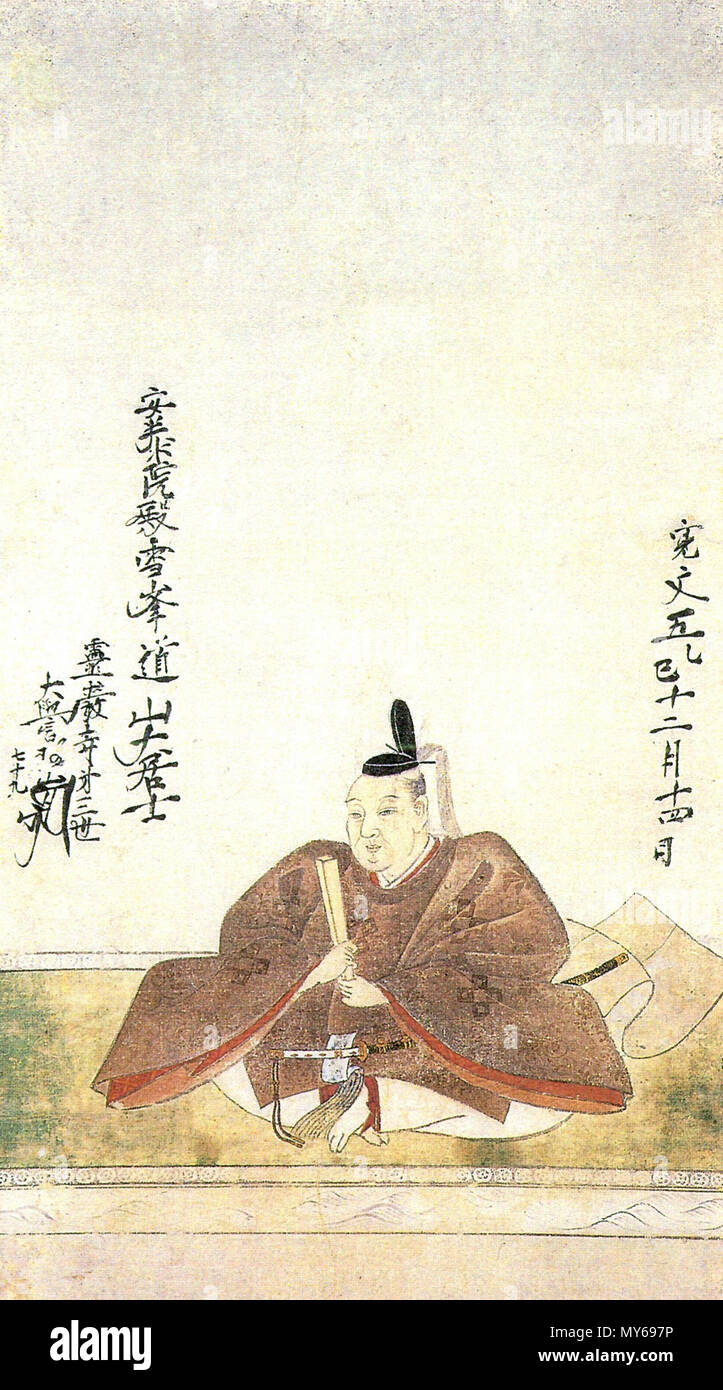 寛文五乙巳十二月十四日
安養院殿雪峯道山大居士
霊巌寺才三世
大誉
七十九
alamy
alamy
Image ID: MY697P
www.alamy.com